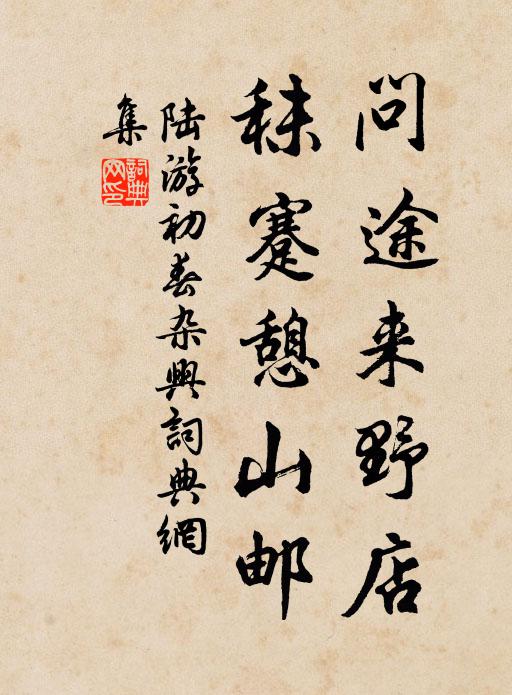 问途来野店
秣蹇憩山邮
陆游初春杂兴詞典網
集
詞典
网印